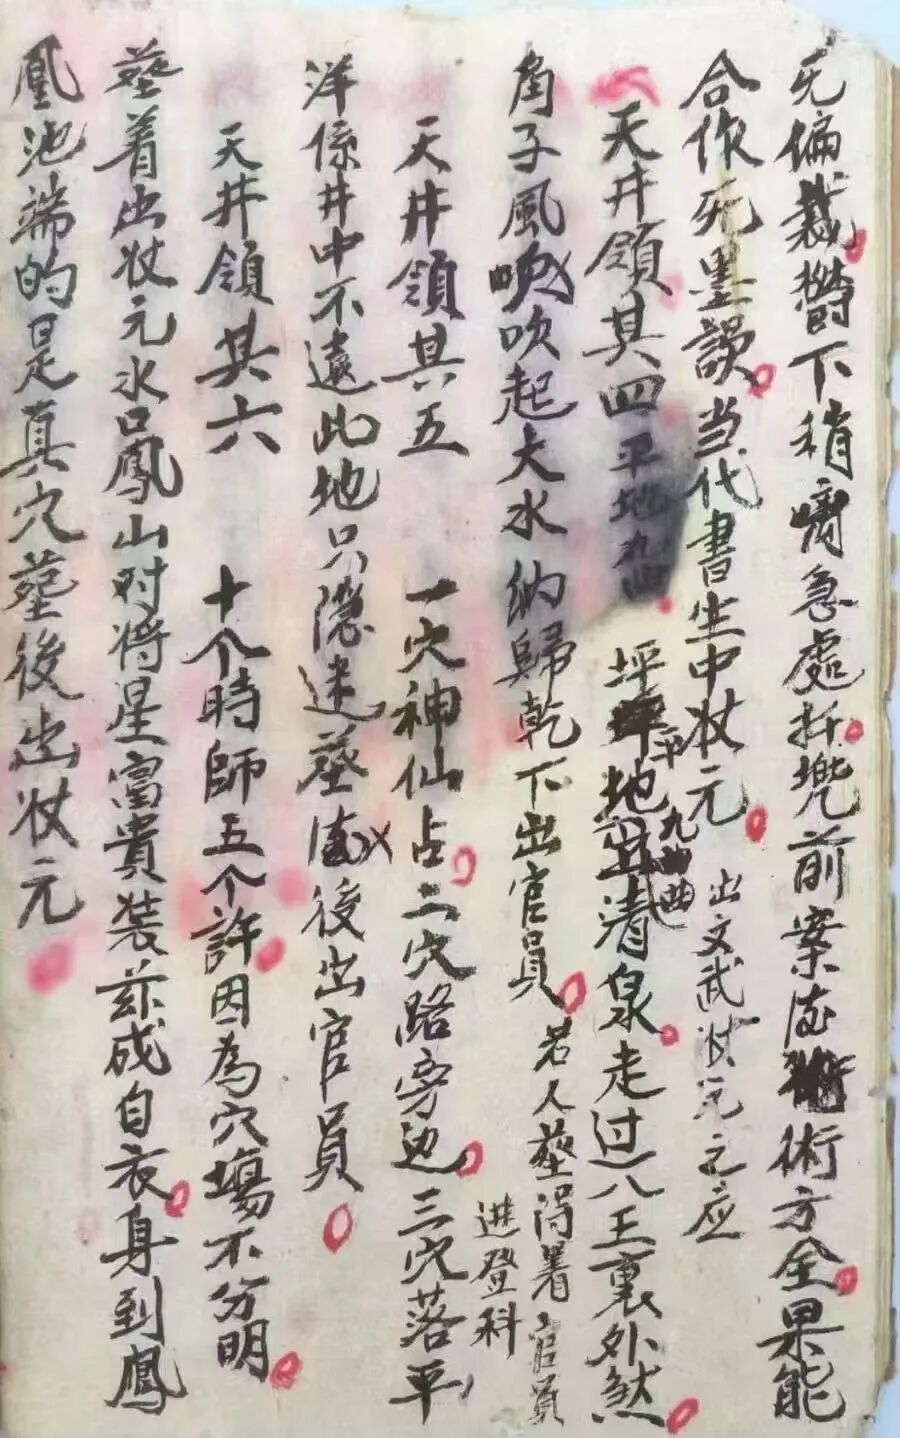 无偏裁欝下稍嘴急處扦墝前案法術方全果能
合作死墨誤当代書生中状元 出文武状元之应
天井領其四 平地九曲 坪平地九曲出清泉走过八王裏外煞
角子風吹起大水納歸乾下出官員 若人墓得著官員進登科
天井領其五 一穴神仙占二穴路旁边三穴落平
洋係井中不遠此地只隱迷墓後出官員
天井領其六 十个時師五个許因為穴場不分明
墓着出状元水口鳳山对将星富貴装蔴成自衣身到鳳
凰池端的是真穴墓後出状元